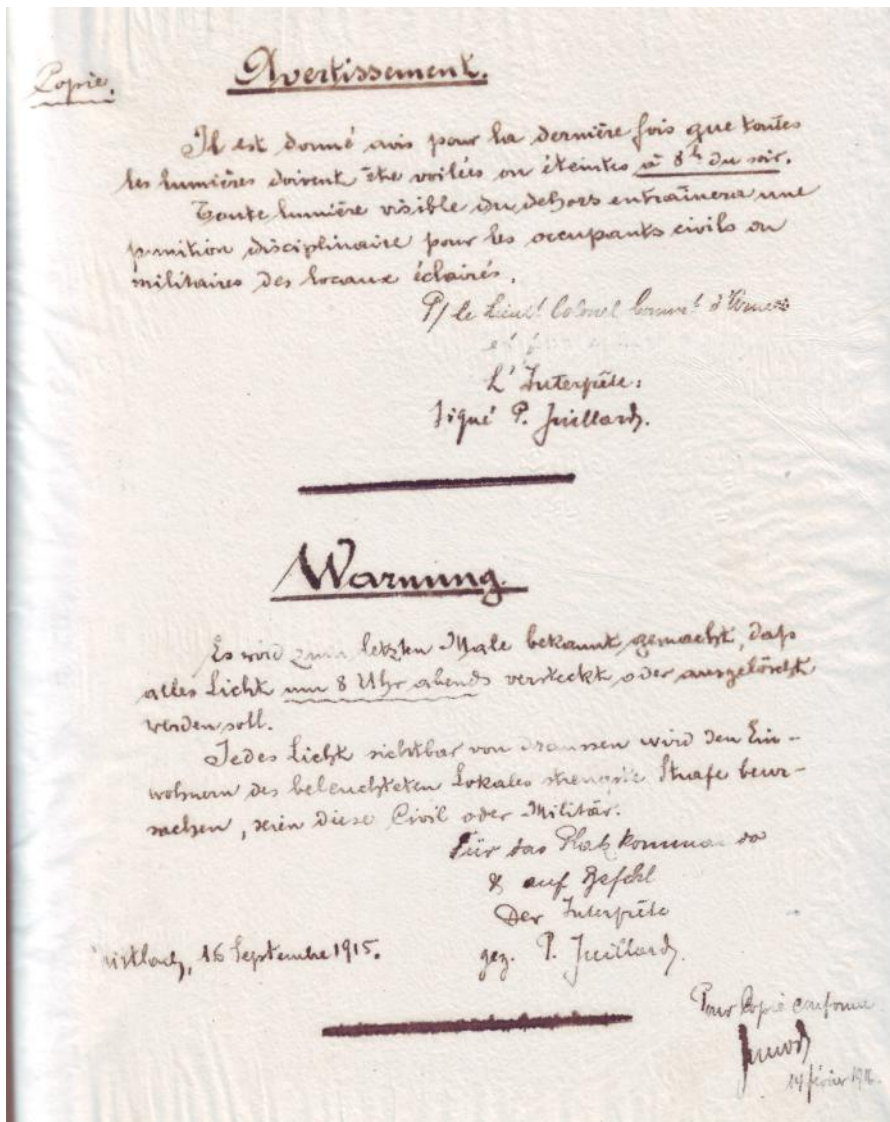 Copie.
Avertissement.
Il est donné avis pour la dernière fois que toutes
les lumières doivent être voilées ou éteintes à 8h du soir.
Toute lumière visible du dehors entraînera une
punition disciplinaire pour les occupants civils ou
militaires des locaux éclairés.
P/ le Lieut Colonel Comm.t d'
L'Interprète:
Signé P. Juillard.
Warnung.
Es wird zum letzten Male bekannt gemacht, daß
alles Licht um 8 Uhr abends versteckt oder ausgelöscht
werden soll.
Jedes Licht sichtbar von draussen wird den Ein-
wohnern des beleuchteten Lokales strengste Strafe beur-
sachen, seien diese Civil oder Militär.
Für das Platzkommando
& auf Befehl
Der Interprète
16 Septembre 1915. gez. P. Juillard.
Pour Copie conforme
14 février 1916.